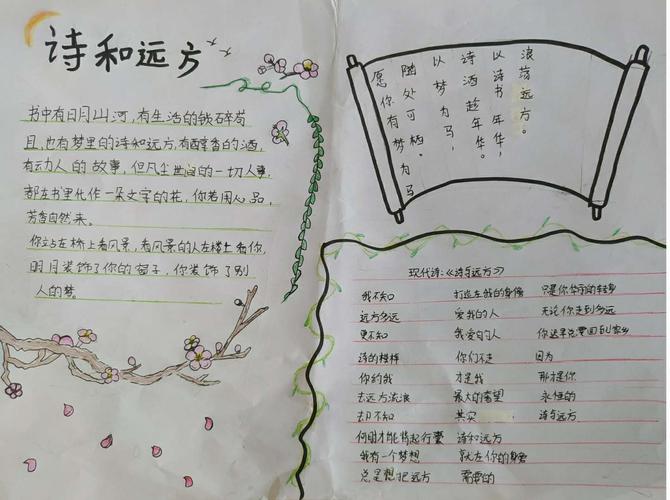 诗和远方
书中有日月山河，有生活的锁碎苟
且，也有梦里的诗和远方，有醇香的酒，
有动人的故事，但凡尘世间的一切人事，
都在书里化作一朵文字的花，你若用心品，
芳香自然来。
你站在桥上看风景，看风景的人在楼上看你，
明月装饰了你的窗子，你装饰了别
人的梦。
浪荡远方。
以诗书年华，
诗酒趁年华。
以梦为马，
随处可栖。
愿你有梦为马
现代诗：《诗与远方》
我不知
远方多远
更不知
诗的模样
你约我
去远方流浪
却不知
何时才能背起行囊
我有一个梦想
总是想把远方
打造在我的身偏
爱我的人
我爱的人
你们不走
才是我
最大的希望
其实
诗和远方
就在你的身旁
需要的
只是你华丽的转身
无论你走到多远
你迟早总要回到家乡
因为
那才是你
永恒的
诗与远方